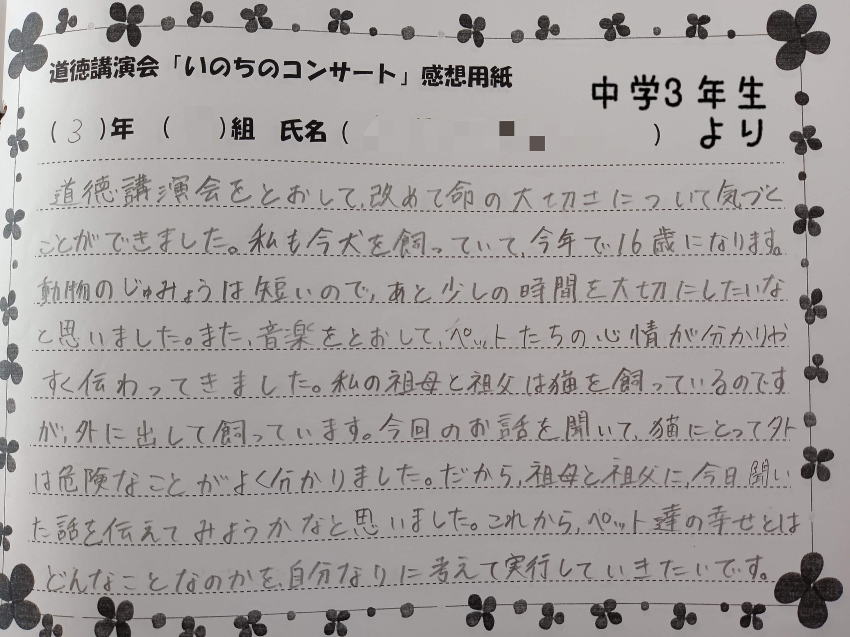 道徳講演会「いのちのコンサート」感想用紙
中学3年生
より
(3)年 ( )組 氏名( )
道徳講演会をとおして、改めて命の大切さについて気づく
ことができました。私も今犬を飼っていて、今年で16歳になります。
動物のじゅみょうは短いので、あと少しの時間を大切にしたいな
と思いました。また、音楽をとおして、ペットたちの心情が分かりや
すく伝わってきました。私の祖母と祖父は猫を飼っているのです
が、外に出して飼っています。今回のお話を聞いて、猫にとって外
は危険なことがよく分かりました。だから、祖母と祖父に、今日聞い
た話を伝えてみようかなと思いました。これから、ペット達の幸せとは
どんなことなのかを、自分なりに考えて実行していきたいです。